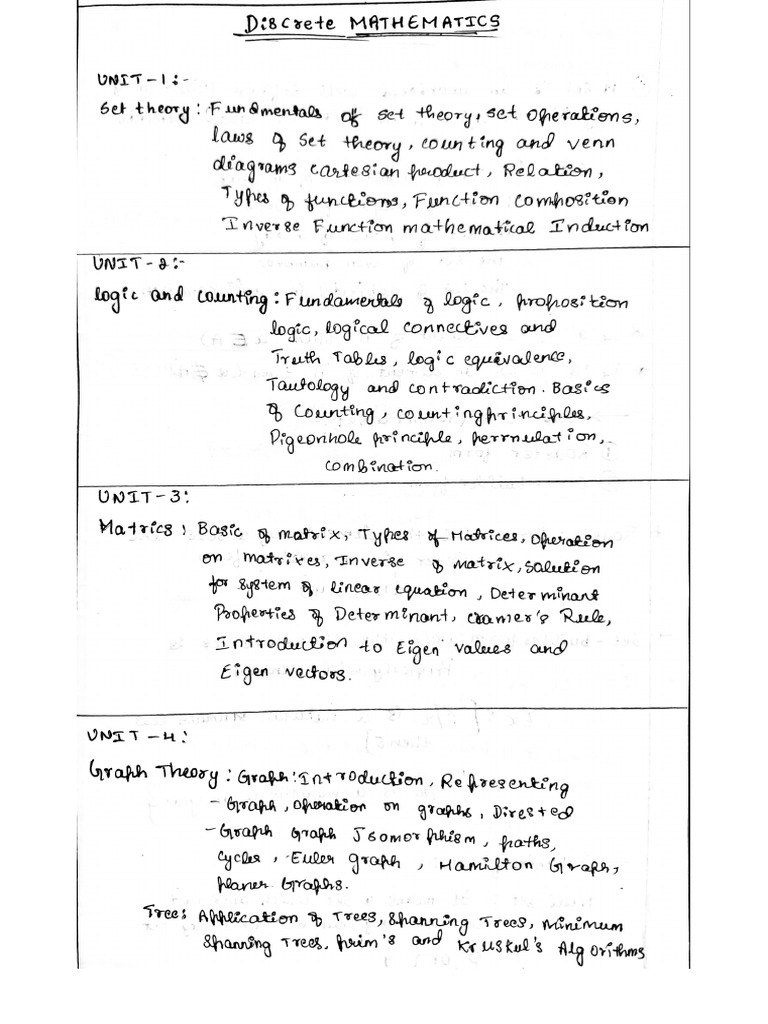 Discrete MATHEMATICS
UNIT-1:-
Set theory: Fundmentals of set theory, set operations,
laws of Set theory, counting and venn
diagrams cartesian product, Relation,
Types of functions, Function composition
Inverse Function mathematical Induction
UNIT-2:-
logic and counting: Fundamentals of logic, proposition
logic, logical connectives and
Truth Tables, logic equivalence,
Tautology and contradiction. Basics
of counting, counting principles,
Pigeonhole principle, perrnulation,
combination.
UNIT-3:
Matrics: Basic of matrix, Types of Matrices, operation
on matrixes, Inverse of matrix, solution
for system of linear equation, Determinant
Properties of Determinant, cramer's Rule,
Introduction to Eigen values and
Eigen vectors.
UNIT-4:
Graph Theory: Graph: Introduction, Representing
- Graph, operation on graphs, Directed
- Graph Graph Isomorphism, paths,
cycles, Euler graph, Hamilton Graph,
planer Graphs.
Tree: Application of Trees, Spanning Trees, Minimum
Spanning Trees, prim's and Kruskul's Algorithms